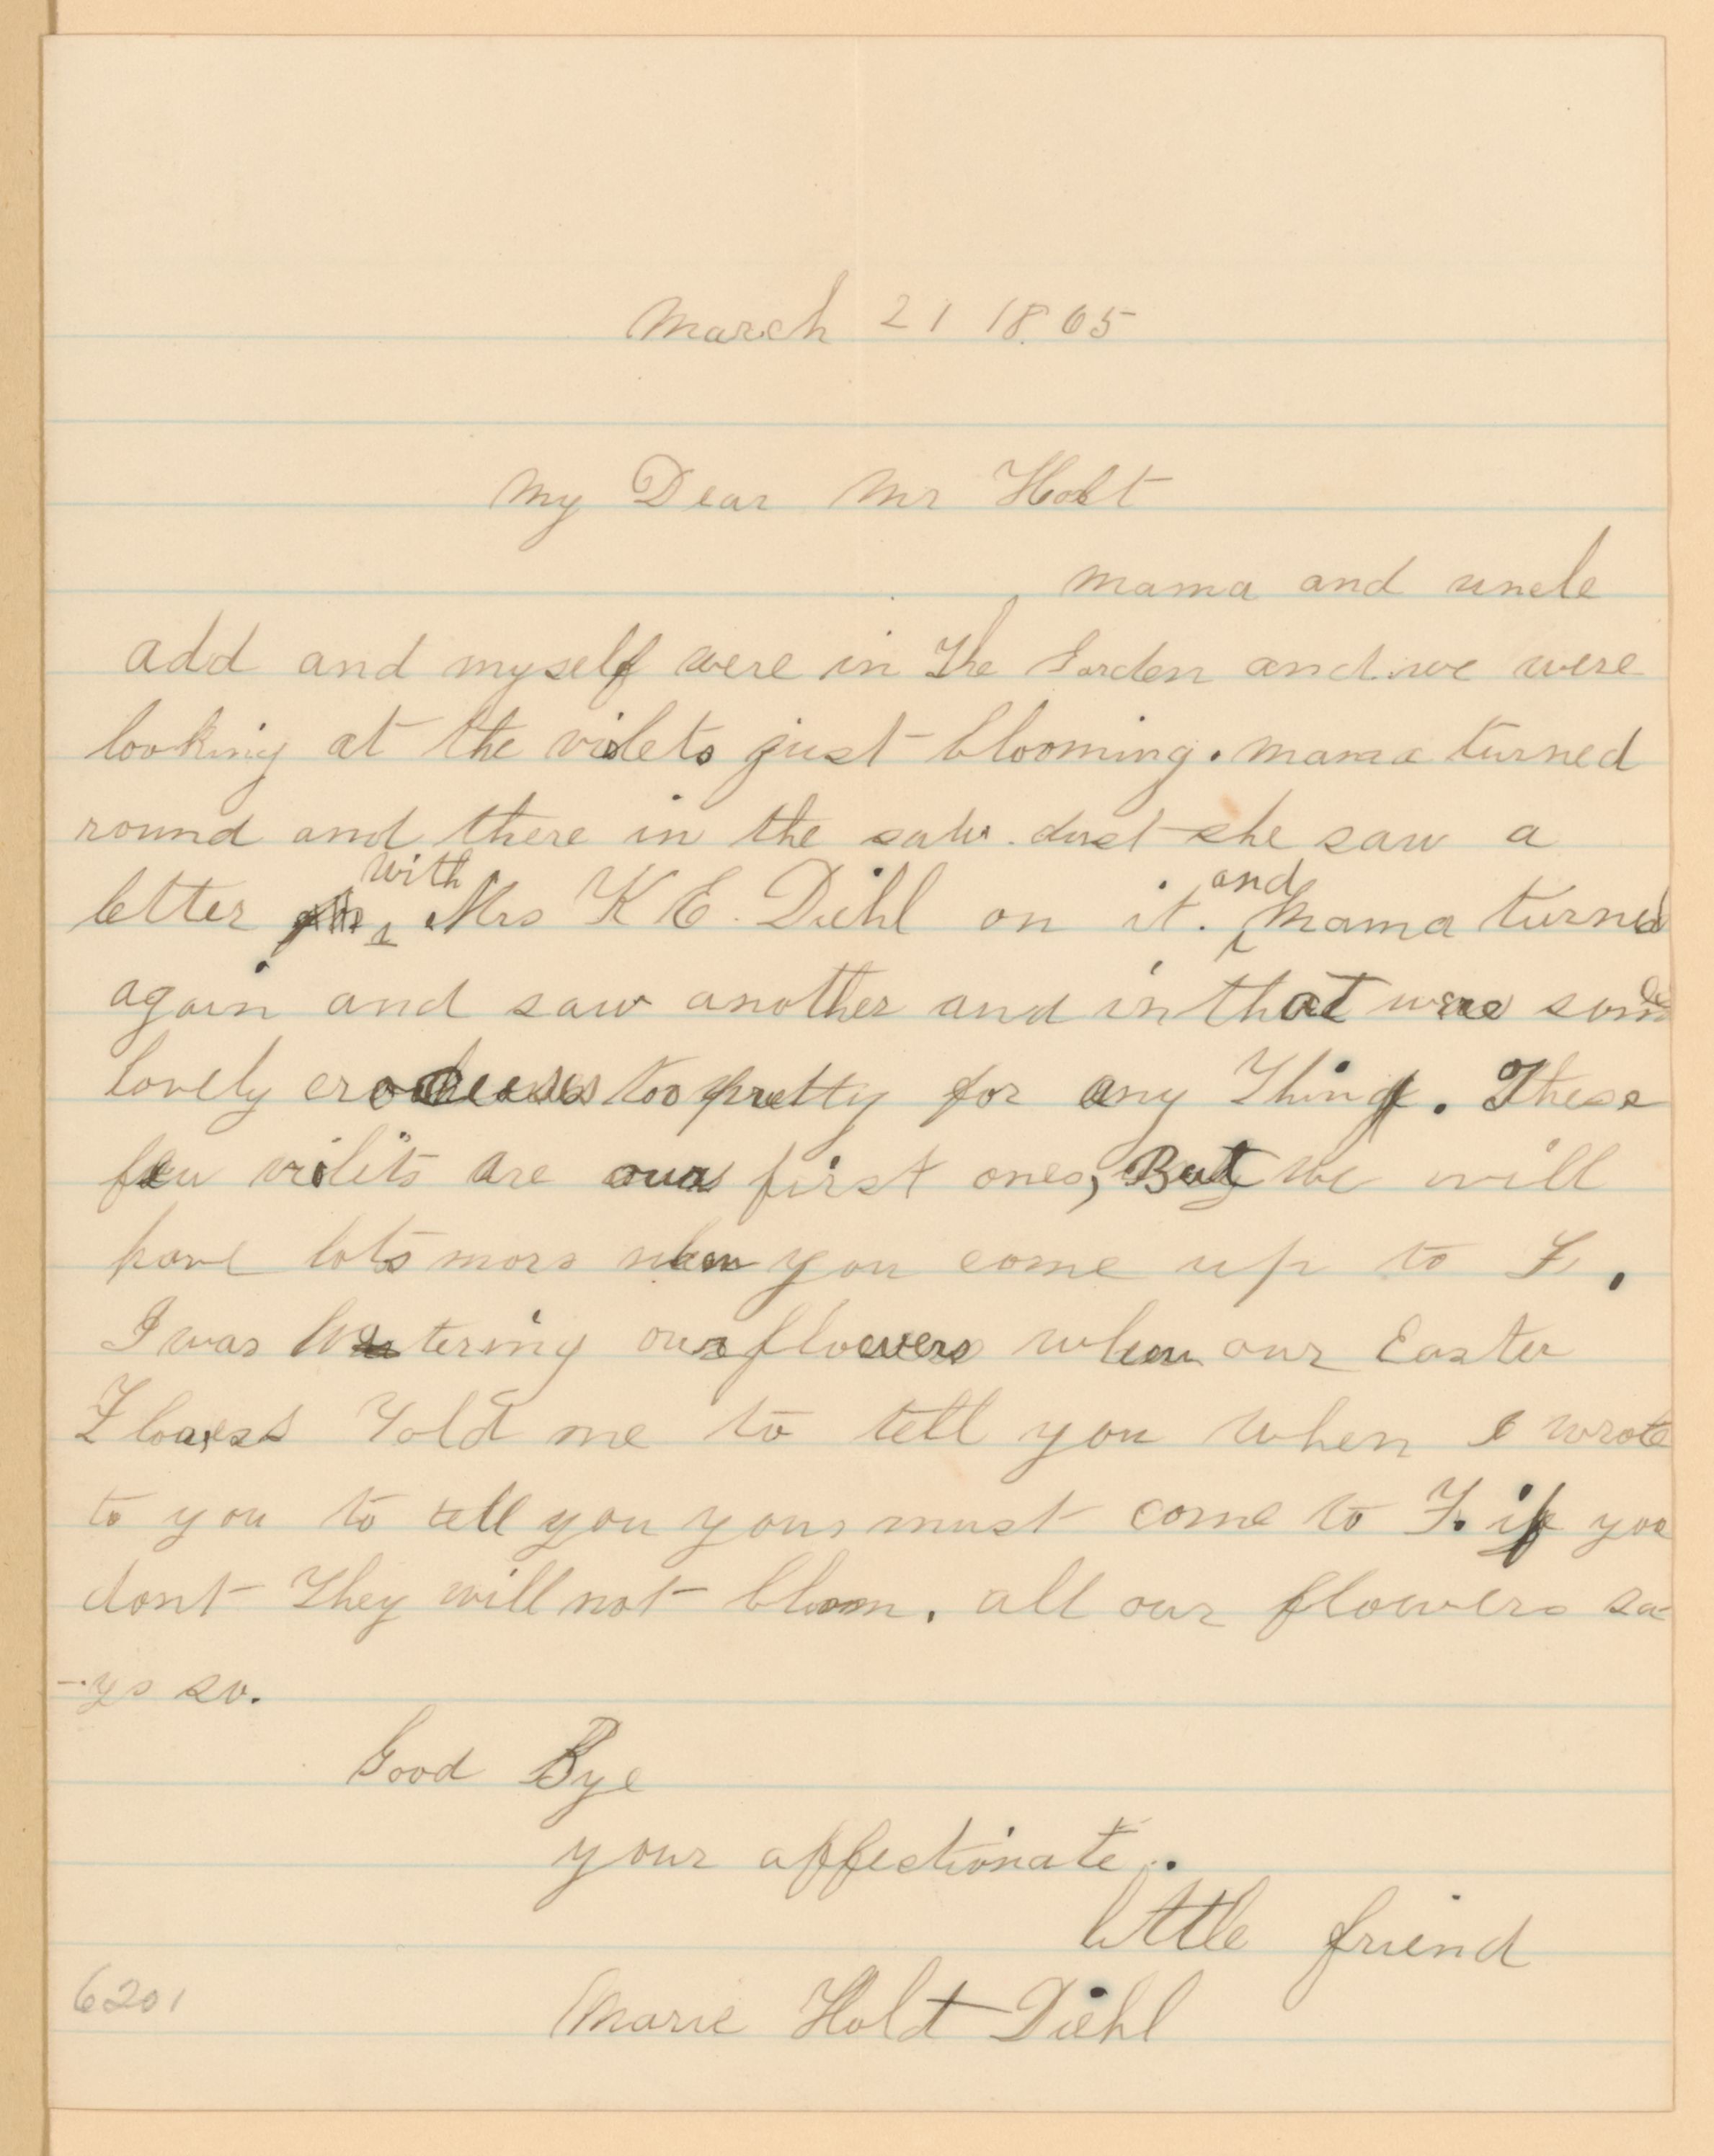 March 21 1865
My Dear Mr Holt
mama and uncle
add and myself were in the Garden and we were
looking at the violets just blooming. mama turned
round and there in the saw. dust she saw a
letter with Mrs K E. Diehl on it. and Mama turned
again and saw another and in that were some
lovely too pretty for any Thing. These
few violits are our first ones, But we will
have lots more when you come up to F.
I was watering our flowers when our Easter
Told me to tell you when I wrote
to you to tell you you must come to F. if you
dont They will not bloom. all our flowers sa-
-ys so.
Good Bye
your affectionate.
little friend
6201
Marie Holt Diehl